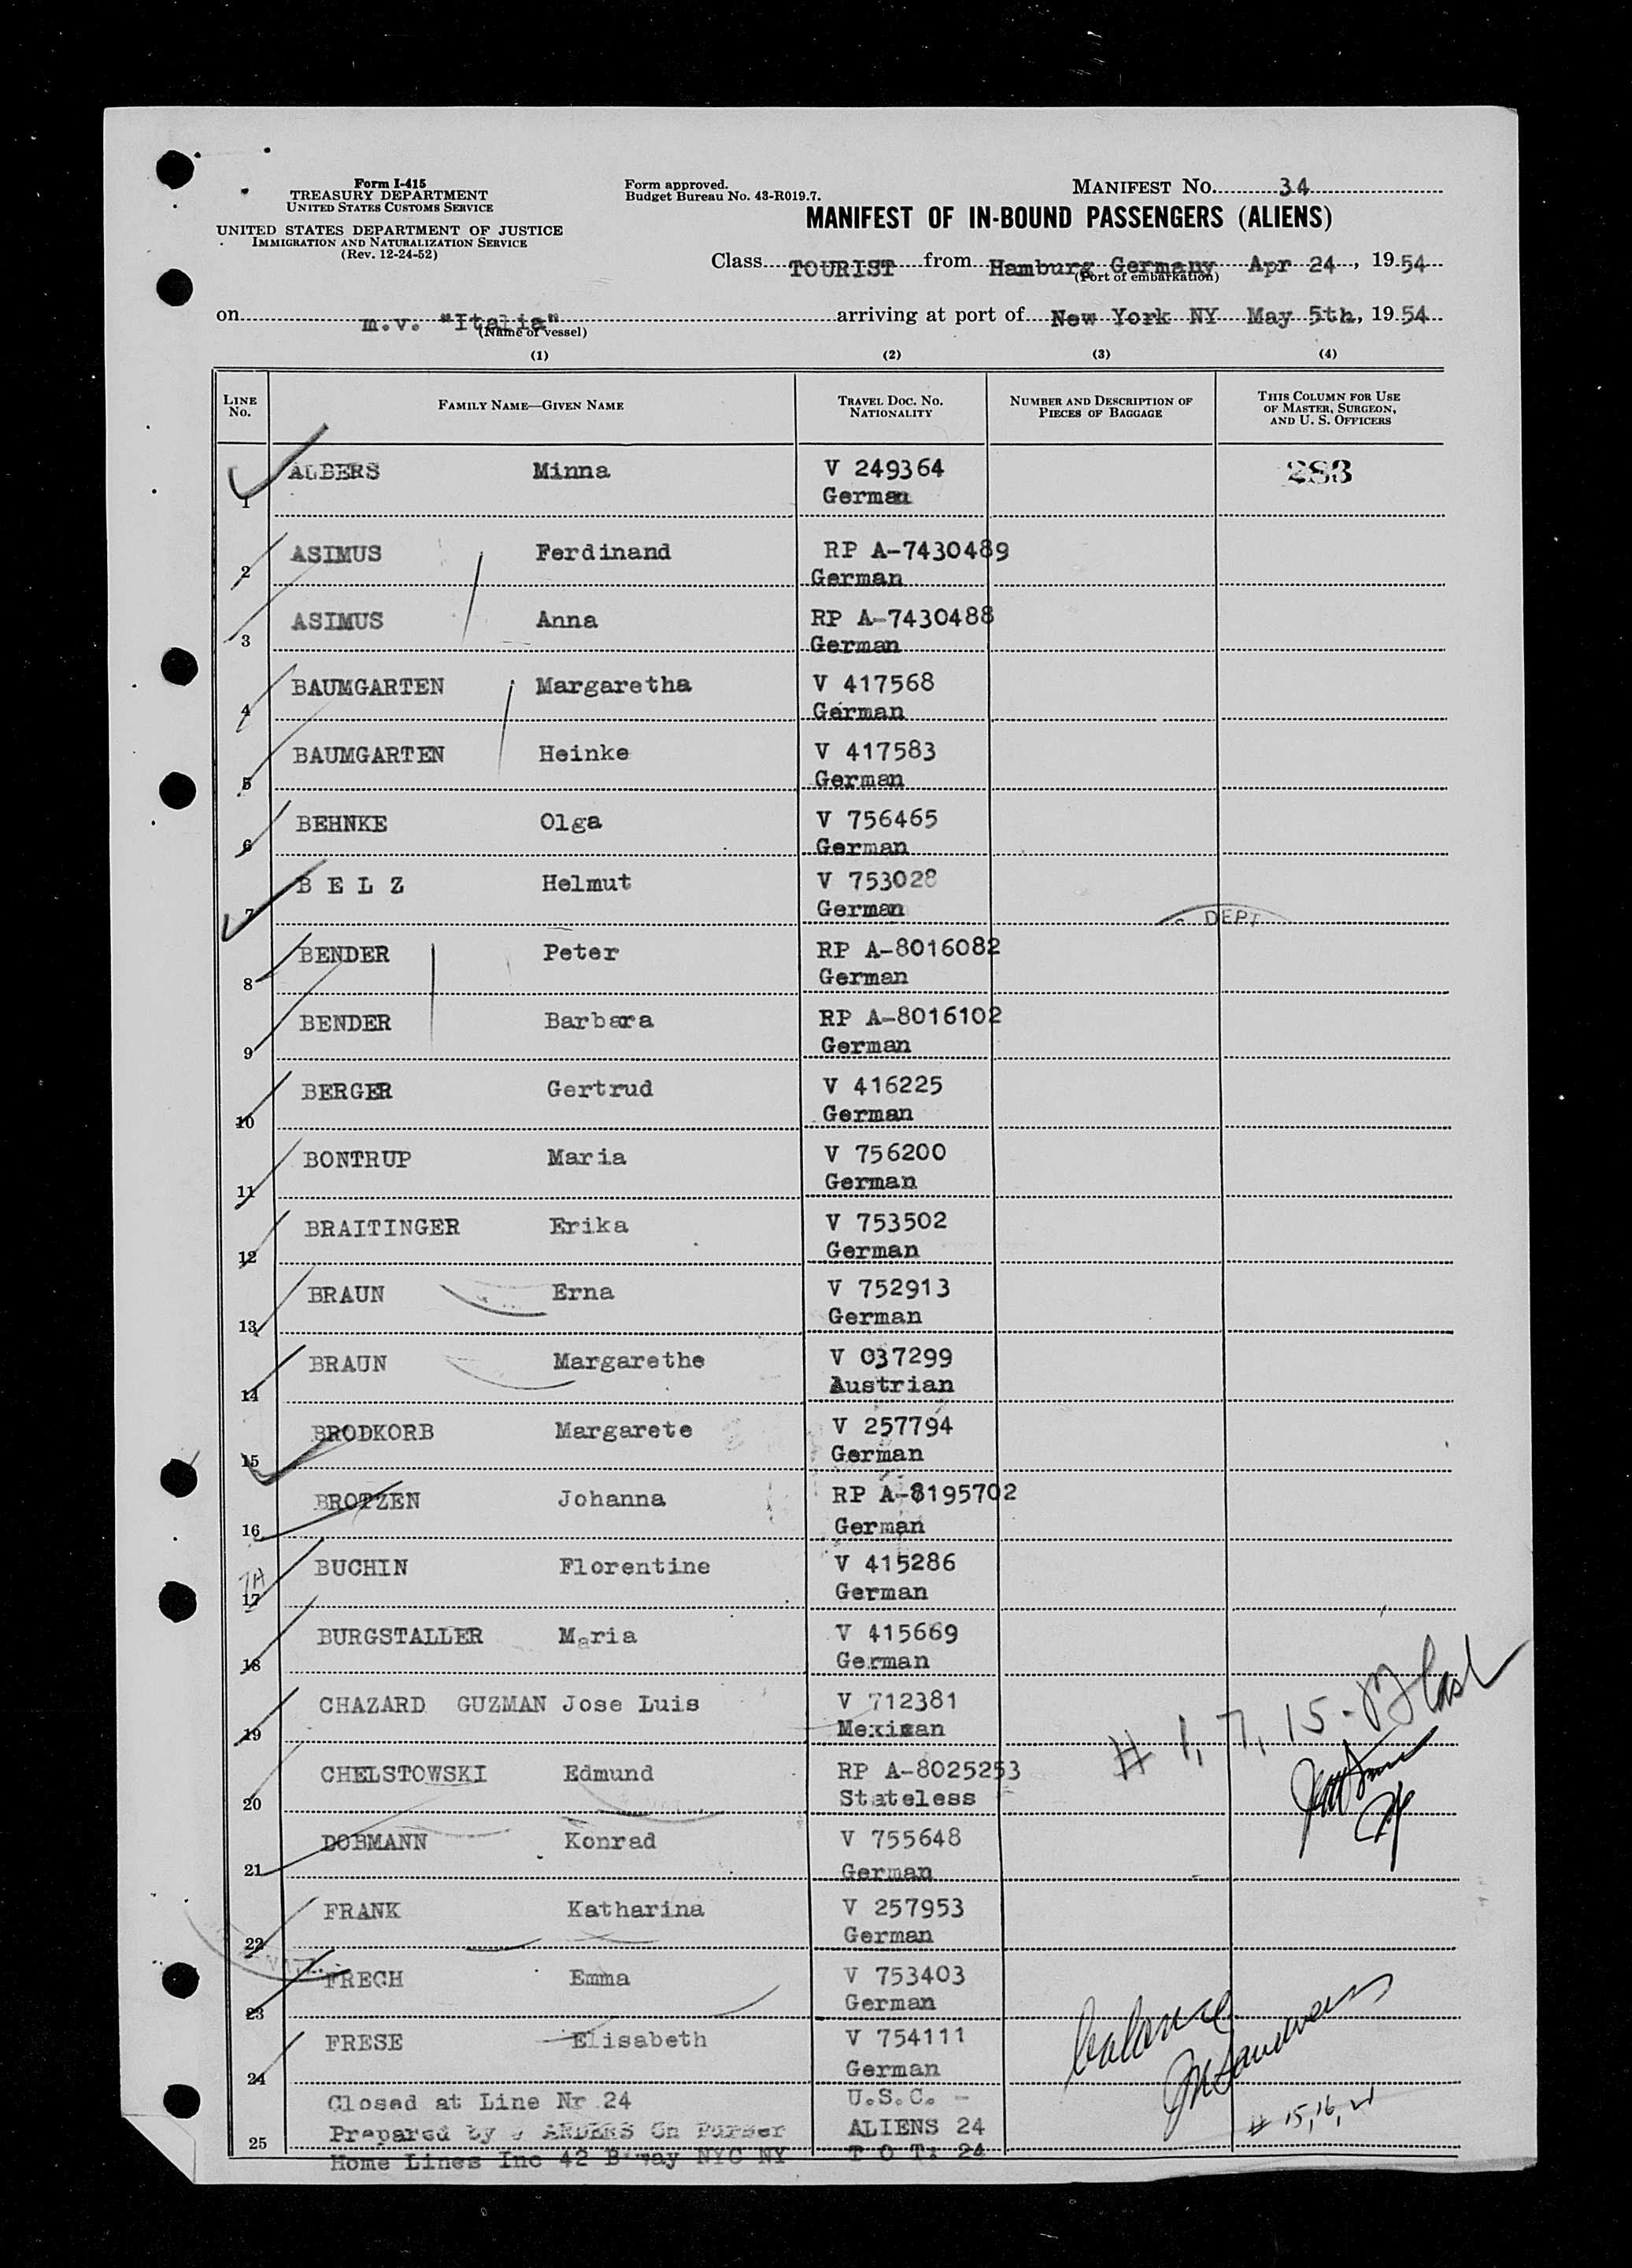 Form I-415
TREASURY DEPARTMENT
UNITED STATES CUSTOMS SERVICE
UNITED STATES DEPARTMENT OF JUSTICE
IMMIGRATION AND NATURALIZATION SERVICE
(Rev. 12-24-52)
Form approved.
Budget Bureau No. 43-R019.7.
MANIFEST NO. 34
MANIFEST OF IN-BOUND PASSENGERS (ALIENS)
Class TOURIST from Hamburg Germany Apr 24, 1954
(Port of embarkation)
on m.v. "Italia" arriving at port of New York NY May 5th, 1954
(Name of vessel)
(1) (2) (3) (4)
LINE No. FAMILY NAME—GIVEN NAME TRAVEL DOC. NO. NATIONALITY NUMBER AND DESCRIPTION OF PIECES OF BAGGAGE THIS COLUMN FOR USE OF MASTER, SURGEON, AND U. S. OFFICERS
1 ALBERS Minna V 249364 283
German
2 ASIMUS Ferdinand RP A-7430489
German
3 ASIMUS Anna RP A-7430488
German
4 BAUMGARTEN Margaretha V 417568
German
5 BAUMGARTEN Heinke V 417583
German
6 BEHNKE Olga V 756465
German
7 B E L Z Helmut V 753028
German
DEPT
8 BENDER Peter RP A-8016082
German
9 BENDER Barbara RP A-8016102
German
10 BERGER Gertrud V 416225
German
11 BONTRUP Maria V 756200
German
12 BRAITINGER Erika V 753502
German
13 BRAUN Erna V 752913
German
14 BRAUN Margarethe V 037299
Austrian
15 BRODKORB Margarete V 257794
German
16 BROTZEN Johanna RP A-8195702
German
17 BUCHIN Florentine V 415286
German
18 BURGSTALLER Maria V 415669
German
19 CHAZARD GUZMAN Jose Luis V 712381
Mexican
# 1, 7, 15 -
20 CHELSTOWSKI Edmund RP A-8025253
Stateless
21 DOBMANN Konrad V 755648
German
22 FRANK Katharina V 257953
German
23 FRECH Emma V 753403
German
24 FRESE Elisabeth V 754111
German
balance
# 15, 16, 21
Closed at Line Nr 24 U.S.C. -
25 Prepared by ANDERS Ch Purser ALIENS 24
Home Lines Inc 42 B'way NYC NY T O T: 24